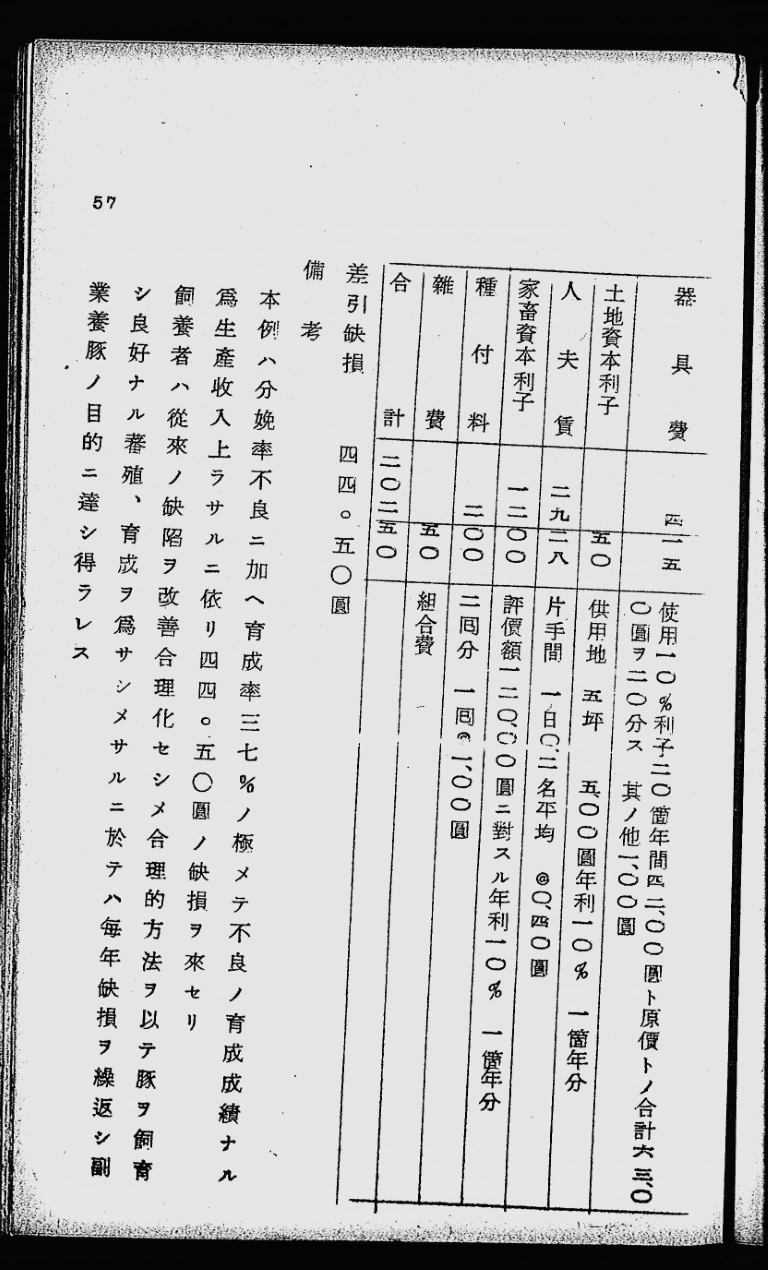 器具費 四一五 使用一〇%利子二〇箇年間四二、〇〇圓ト原價トノ合計六三、〇
〇圓ヲ二〇分ス 其ノ他一、〇〇圓
土地資本利子 五〇 供用地 五坪 五、〇〇圓年利一〇% 一箇年分
人夫賃 二九二八 片手間 一日〇、二名平均 @〇、四〇圓
家畜資本利子 一二〇〇 評價額一二〇、〇〇圓ニ對スル年利一〇% 一箇年分
種付料 二〇〇 二囘分 一囘@一、〇〇圓
雜費 五〇 組合費
合計 二〇二五〇
差引缺損 四四。五〇圓
備考
本例ハ分娩率不良ニ加ヘ育成率三七%ノ極メテ不良ノ育成成績ナル
爲生產收入上ラサルニ依リ四四。五〇圓ノ缺損ヲ來セリ
飼養者ハ從來ノ缺陷ヲ改善合理化セシメ合理的方法ヲ以テ豚ヲ飼育
シ良好ナル蕃殖、育成ヲ爲サシメサルニ於テハ每年缺損ヲ繰返シ副
業養豚ノ目的ニ達シ得ラレス
57